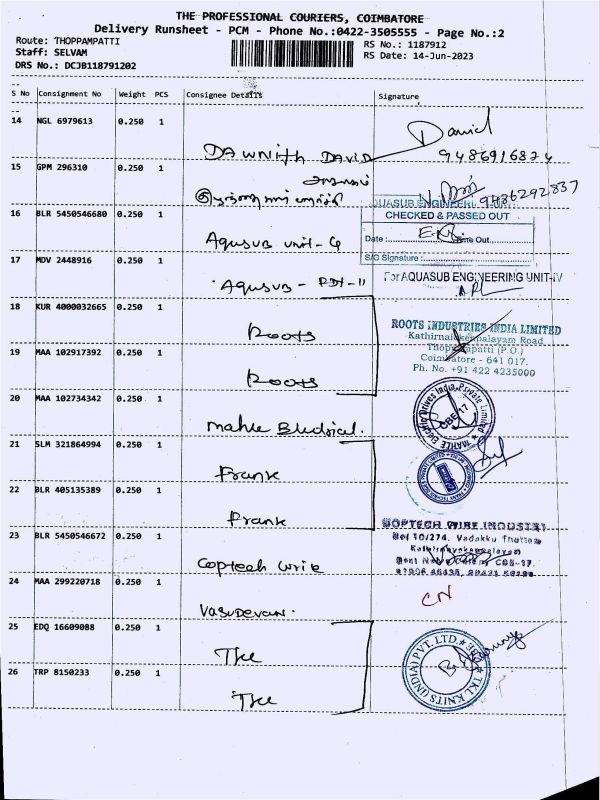 THE PROFESSIONAL COURIERS, COIMBATORE
Delivery Runsheet - PCM - Phone No.:0422-3505555 - Page No.:2
Route: THOPPAMPATTI
RS No.: 1187912
Staff: SELVAM
RS Date: 14-Jun-2023
DRS No.: DCJB118791202
S No Consignment No Weight PCS Consignee Details Signature
14 NGL 6979613 0.250 1
DAWNITH DAVID
David
9486916874
15 GPM 296310 0.250 1
9486292837
16 BLR 5450546680 0.250 1
Aqusub unit-4
AQUASUB ENGINEERING
CHECKED & PASSED OUT
Date : Time Out
S/O Signature :
17 MDV 2448916 0.250 1
Aqusub - PDI-II
For AQUASUB ENGINEERING UNIT-IV
18 KUR 4000032665 0.250 1
Roots
ROOTS INDUSTRIES INDIA LIMITED
Kathirnaickenpalayam Road,
Thoppampatti (P.O.)
Coimbatore - 641 017.
Ph. No. +91 422 4235000
19 MAA 102917392 0.250 1
Roots
20 MAA 102734342 0.250 1
Mahle Eledrical.
MAHLE Electric Drives India Private Limited
CBE-17
21 SLM 321864994 0.250 1
Frank
22 BLR 405135389 0.250 1
Frank
23 BLR 5450546672 0.250 1
Coptech wire
COPTECH WIRE INDUSTRY
No: 10/274, Vadakku Thottam
Kathirnaickenpalayam
24 MAA 299220718 0.250 1
Vasudevan.
CN
25 EDQ 16609088 0.250 1
TKL
26 TRP 8150233 0.250 1
TKL
TKL KNITS (INDIA) PVT. LTD.